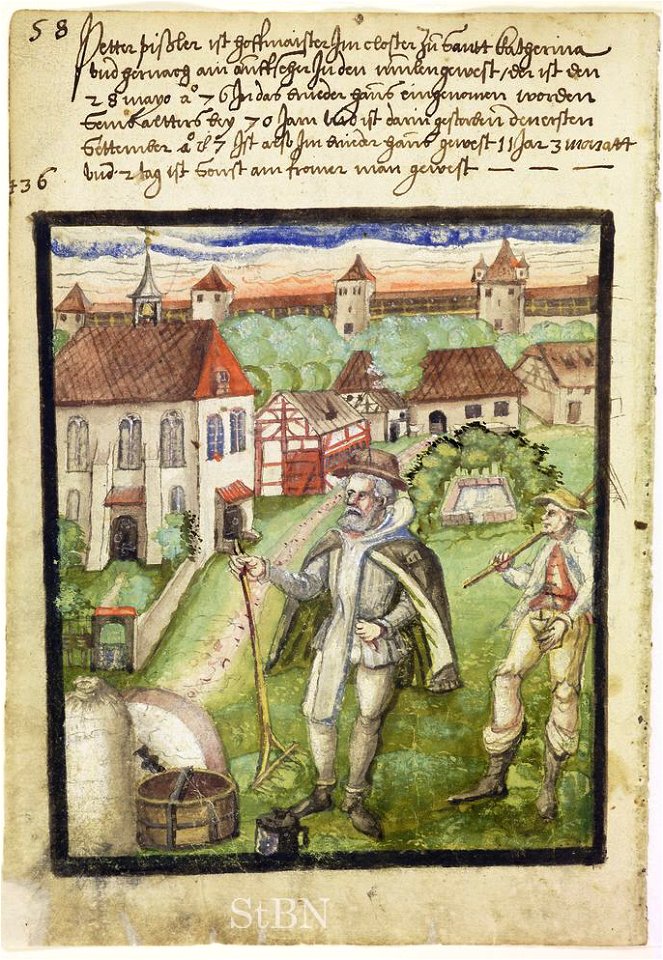 58
Petter pißler ist hoffmaister Im closter zu Santt katherina
vnd hernach ain auffseher In den mulen gewest / der ist den
28 mayo a° 76 In das brueder hauß eingenomen worden
Seins altters bey 70 Jarn vnd ist darin gestorben den ersten
Settember a° 87 Ist also Im brueder hauß gewest 11 Jar 3 monatt
vnd 2 tag ist sonst ain fromer man gewest — — —
136
StBN